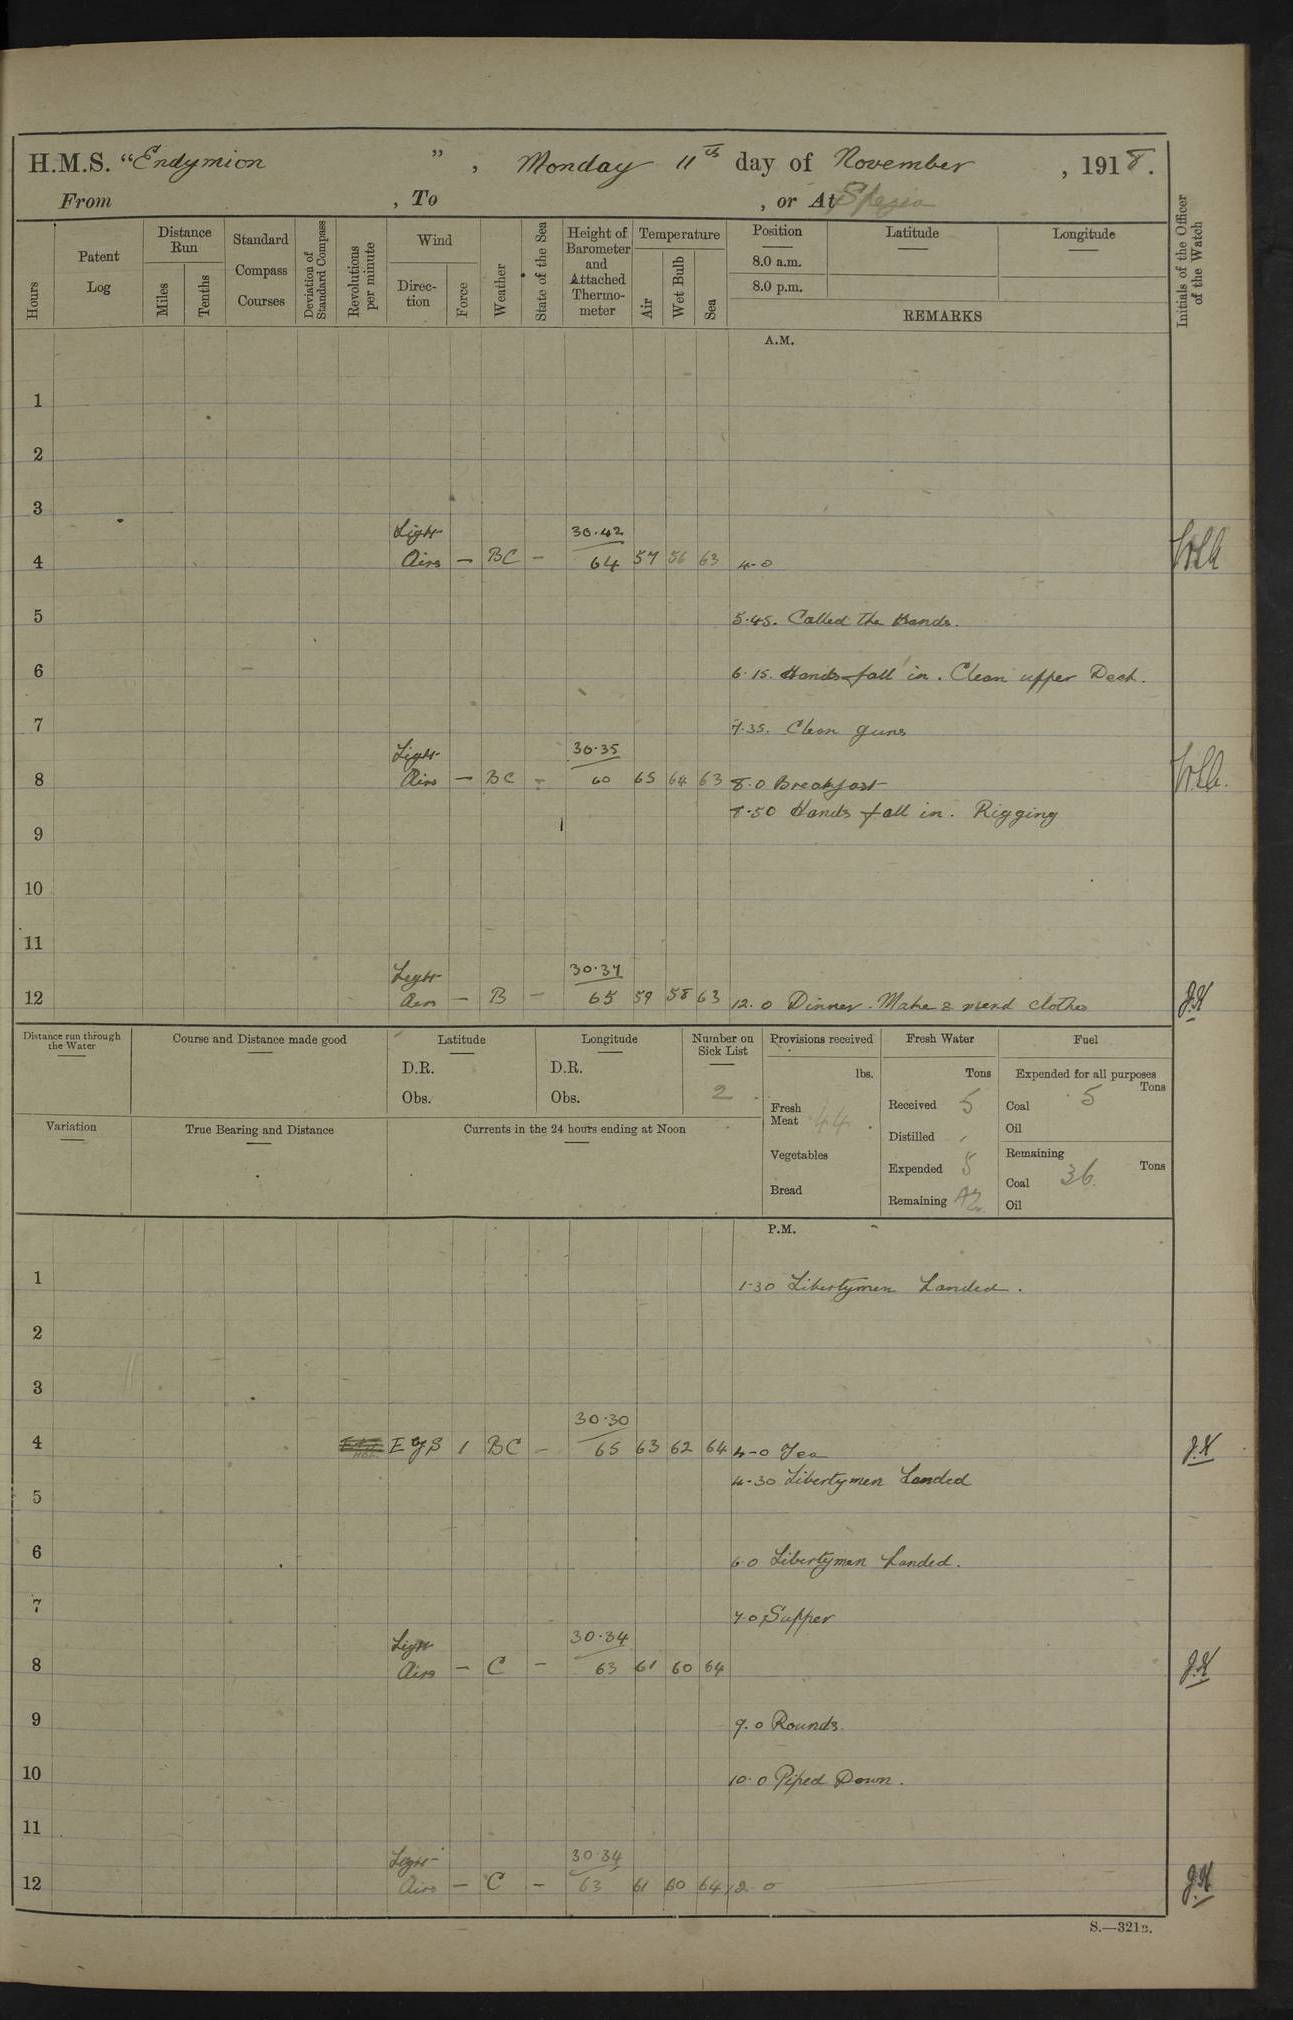 H.M.S. "Endymion ", Monday 11th day of November, 1918.
From , To , or At Spezia
Hours
Patent Log
Distance Run
Miles
Tenths
Standard Compass Courses
Deviation of Standard Compass
Revolutions per minute
Wind
Direction
Force
Weather
State of the Sea
Height of Barometer and Attached Thermometer
Temperature
Air
Wet Bulb
Sea
Position Latitude Longitude
8.0 a.m.
8.0 p.m.
REMARKS
Initials of the Officer of the Watch
A.M.
1
2
3
Light 30.42
4 Airs — BC — 64 57 56 63 4-0
5 5.45. Called the Hands.
6 6.15. Hands fall in. Clean upper Deck.
7 7.35. Clean guns
Light 30.35
8 Airs — BC - 60 65 64 63 8.0 Breakfast
8.50 Hands fall in. Rigging
9
10
11
Light 30.37
12 Airs — B — 65 59 58 63 12.0 Dinner. Make & mend clothes J.H
Distance run through the Water
Course and Distance made good
Latitude
D.R.
Obs.
Longitude
D.R.
Obs.
Number on Sick List
2
Provisions received
lbs.
Fresh Meat 44
Vegetables
Bread
Fresh Water
Tons
Received 5
Distilled
Expended 5
Remaining
Fuel
Expended for all purposes
Tons
Coal 5
Oil
Remaining
Tons
Coal 36
Oil
Variation
True Bearing and Distance
Currents in the 24 hours ending at Noon
P.M.
1 1-30 Libertymen Landed.
2
3
30.30
4 E by S 1 BC — 65 63 62 64 4-0 Tea J.H
4-30 Libertymen Landed
5
6 6.0 Libertymen Landed.
7 7.0 Supper
Light 30.34
8 Airs — C — 63 61 60 64 J.H
9 9.0 Rounds.
10 10.0 Piped Down.
11
Light 30.34
12 Airs — C — 63 61 60 64 12.0 J.H
S.—321B.